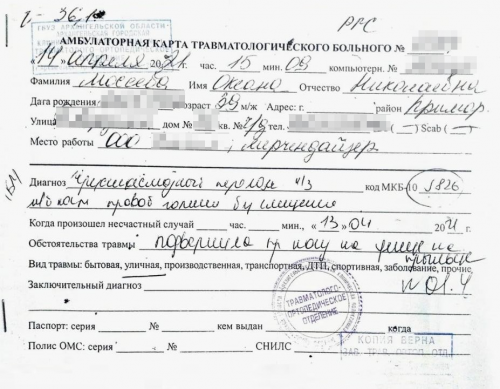 t - 36,1°
РРС
ГБУЗ АРХАНГЕЛЬСКОЙ ОБЛАСТИ
АМБУЛАТОРНАЯ КАРТА ТРАВМАТОЛОГИЧЕСКОГО БОЛЬНОГО №
"14" апреля 2021 час. 15 мин. 09 компьютерн. №
Фамилия Мосеева Имя Оксана Отчество Николаевна
Дата рождения возраст 39 м/ж Адрес: г. район Примор.
Улица дом № кв. № тел. ( ) Scab ( )
Место работы ОО , мерчендайзер
Диагноз перелом н/з
правой голени без смещения код МКБ-10 S826
Когда произошел несчастный случай час. мин., «13» 04 2021 г.
Обстоятельства травмы подвернула пр ногу на улице на
прыльце
Вид травмы: бытовая, уличная, производственная, транспортная, ДТП, спортивная, заболевание, прочие
Заключительный диагноз
ТРАВМАТОЛОГО-
ОРТОПЕДИЧЕСКОЕ
ОТДЕЛЕНИЕ
Паспорт: серия № кем выдан когда
КОПИЯ ВЕРНА
Полис ОМС: серия № СНИЛС